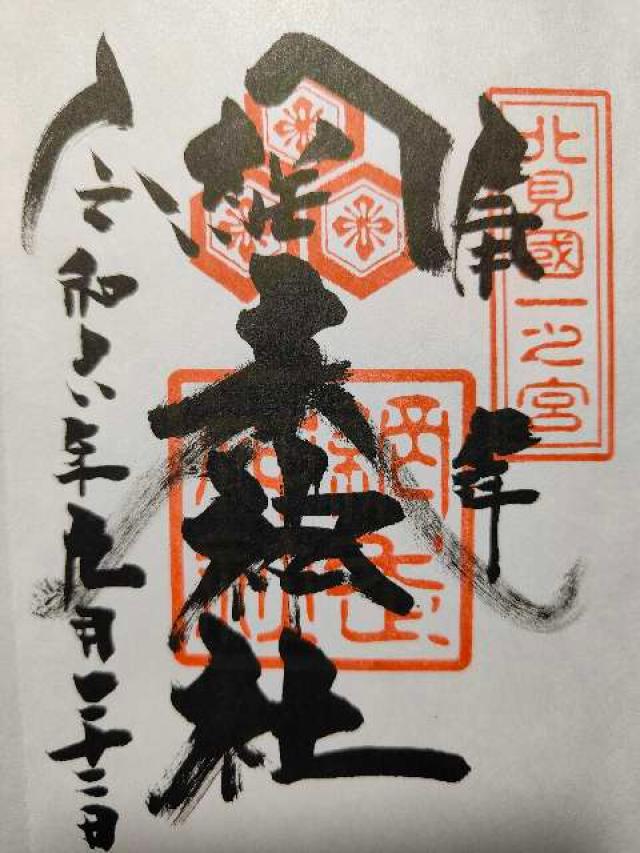 北見國一之宮
奉拝
網走神社
網走神社
令和六年九月二十二日